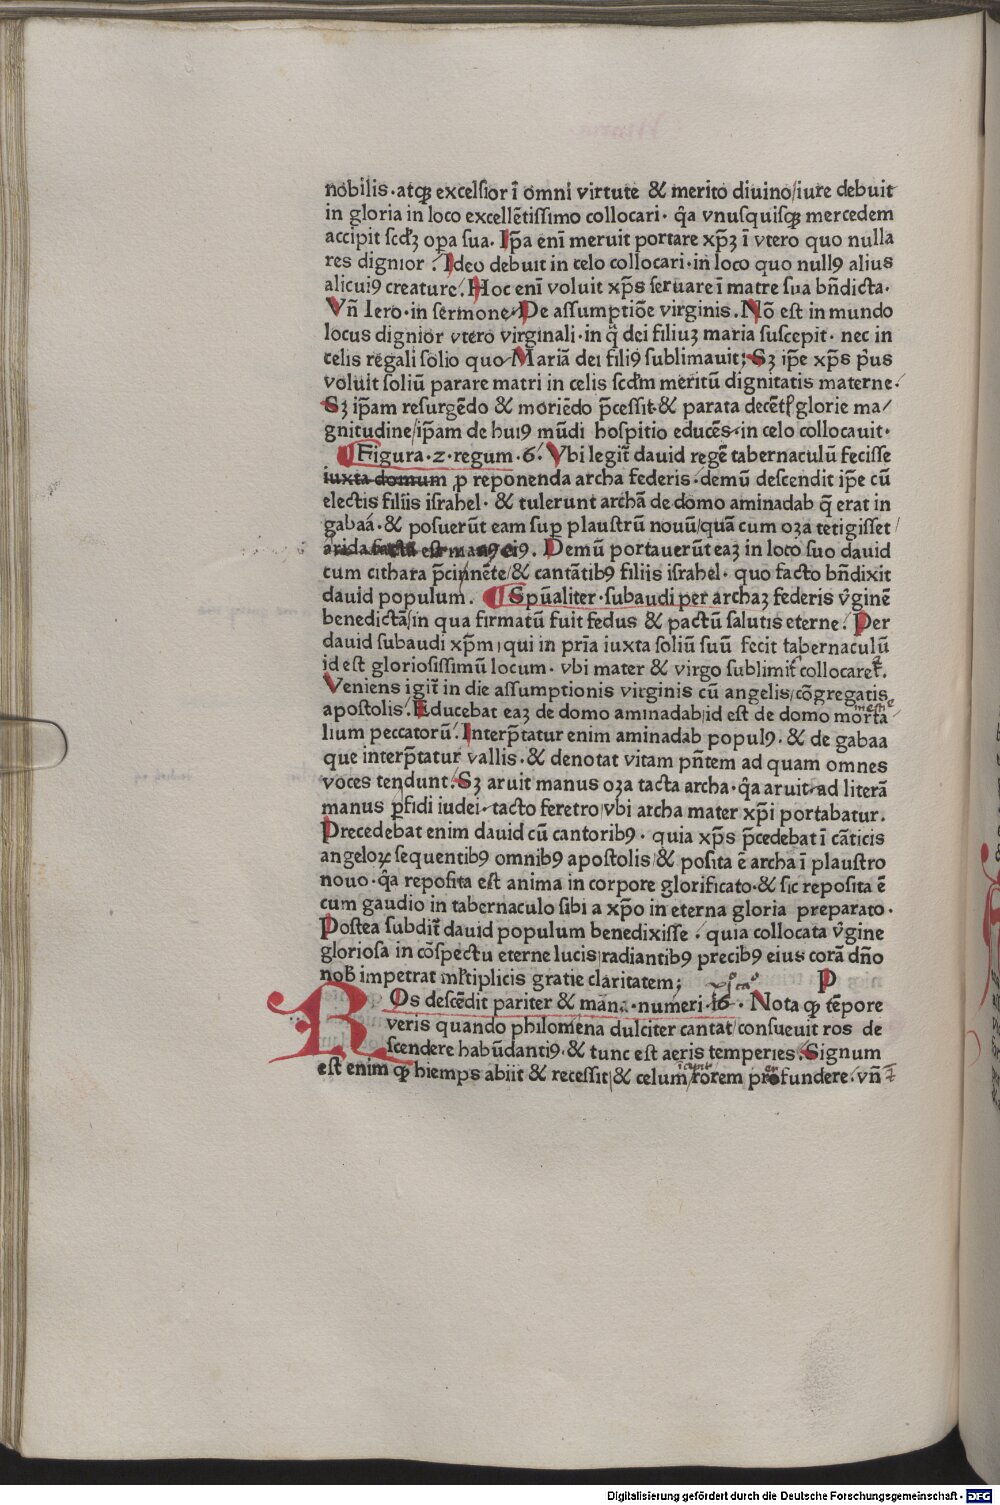 nobilis·atqꝫ excelſior ī omni virtute & merito diuino/iure debuit
in gloria in loco excellētiſſimo collocari· q̄a vnuſquiſqꝫ mercedem
accipit ſcdꝫ oꝑa ſua. Ip̄a eni meruit portare xp̄ꝫ ī vtero quo nulla
res dignior. Ideo debuit in celo collocari·in loco quo null9 alius
alicui9 creature. Hoc enī voluit xp̄s ſeruare ī matre ſua bn̄dicta·
Vn̄ Iero·in ſermone·De aſſumptiōe virginis. Nō eſt in mundo
locus dignior vtero virginali·in q̄ dei filiuꝫ maria ſuſcepit· nec in
celis regali ſolio quo Mariā dei fili9 ſublimauit; Sꝫ ip̄e xp̄s p̄us
voluit ſoliū parare matri in celis ſcdm̄ meritū dignitatis materne·
Sꝫ ip̄am reſurgēdo & moriēdo p̄ceſſit·& parata decēti glorie ma/
gnitudine/ip̄am de hui9 mūdi hoſpitio educēs·in celo collocauit·
Figura·2·regum·6. Vbi legit̄ dauid regē tabernaculū feciſſe
iuxta domum ꝑ reponenda archa federis·demū deſcendit ip̄e cū
electis filiis iſrahel·& tulerunt archā de domo aminadab q̄ erat in
gabaá·& poſuerūt eam ſuꝑ plauſtrū nouū/quā cum oza tetigiſſet/
arida facta eſt man9 ei9. Demū portauerūt eaꝫ in loco ſuo dauid
cum cithara p̄cinnēte/& cantātib9 filiis iſrahel·quo facto bn̄dixit
dauid populum. Spūaliter·ſubaudi per archaꝫ federis v̄ginē
benedictā/in qua firmatū fuit fedus & pactū ſalutis eterne. Per
dauid ſubaudi xp̄m/qui in pria iuxta ſoliū ſuū fecit tabernaculū
id eſt glorioſiſſimū locum· vbi mater & virgo ſublimit̄ collocaret̄.
Veniens igit̄ in die aſſumptionis virginis cū angelis/cōgregatis
apoſtolis. Educebat eaꝫ de domo aminadab/id eſt de domo morta
lium peccatorū. Interp̄tatur enim aminadab popul9·& de gabaa
que interp̄tatur vallis·& denotat vitam pn̄tem ad quam omnes
voces tendunt. Sꝫ aruit manus oza tacta archa·q̄a aruit·ad literā
manus ꝑfidi iudei·tacto feretro/vbi archa mater xp̄i portabatur.
Precedebat enim dauid cū cantorib9· quia xp̄s p̄cedebat ī cāticis
angeloꝝ ſequentib9 omnib9 apoſtolis/& poſita ē archa ī plauſtro
nouo·q̄a repoſita eſt anima in corpore glorificato·& ſic repoſita ē
cum gaudio in tabernaculo ſibi a xp̄o in eterna gloria preparato·
Poſtea ſubdit̄ dauid populum benedixiſſe· quia collocata v̄gine
glorioſa in cōſpectu eterne lucis/radiantib9 precib9 eius corā dn̄o
nob̄ impetrat ml̄tiplicis gratie claritatem; P
ROs deſcēdit pariter & māna·numeri·16· Nota qꝫ tēpore
veris quando philomena dulciter cantat/conſueuit ros de
ſcendere habūdanti9·& tunc eſt aeris temperies. Signum
eſt enim qꝫ hiemps abiit & receſſit/& celum/ incipit rorem profundere·vn̄
Digitalisierung gefördert durch die Deutsche Forschungsgemeinschaft - DFG